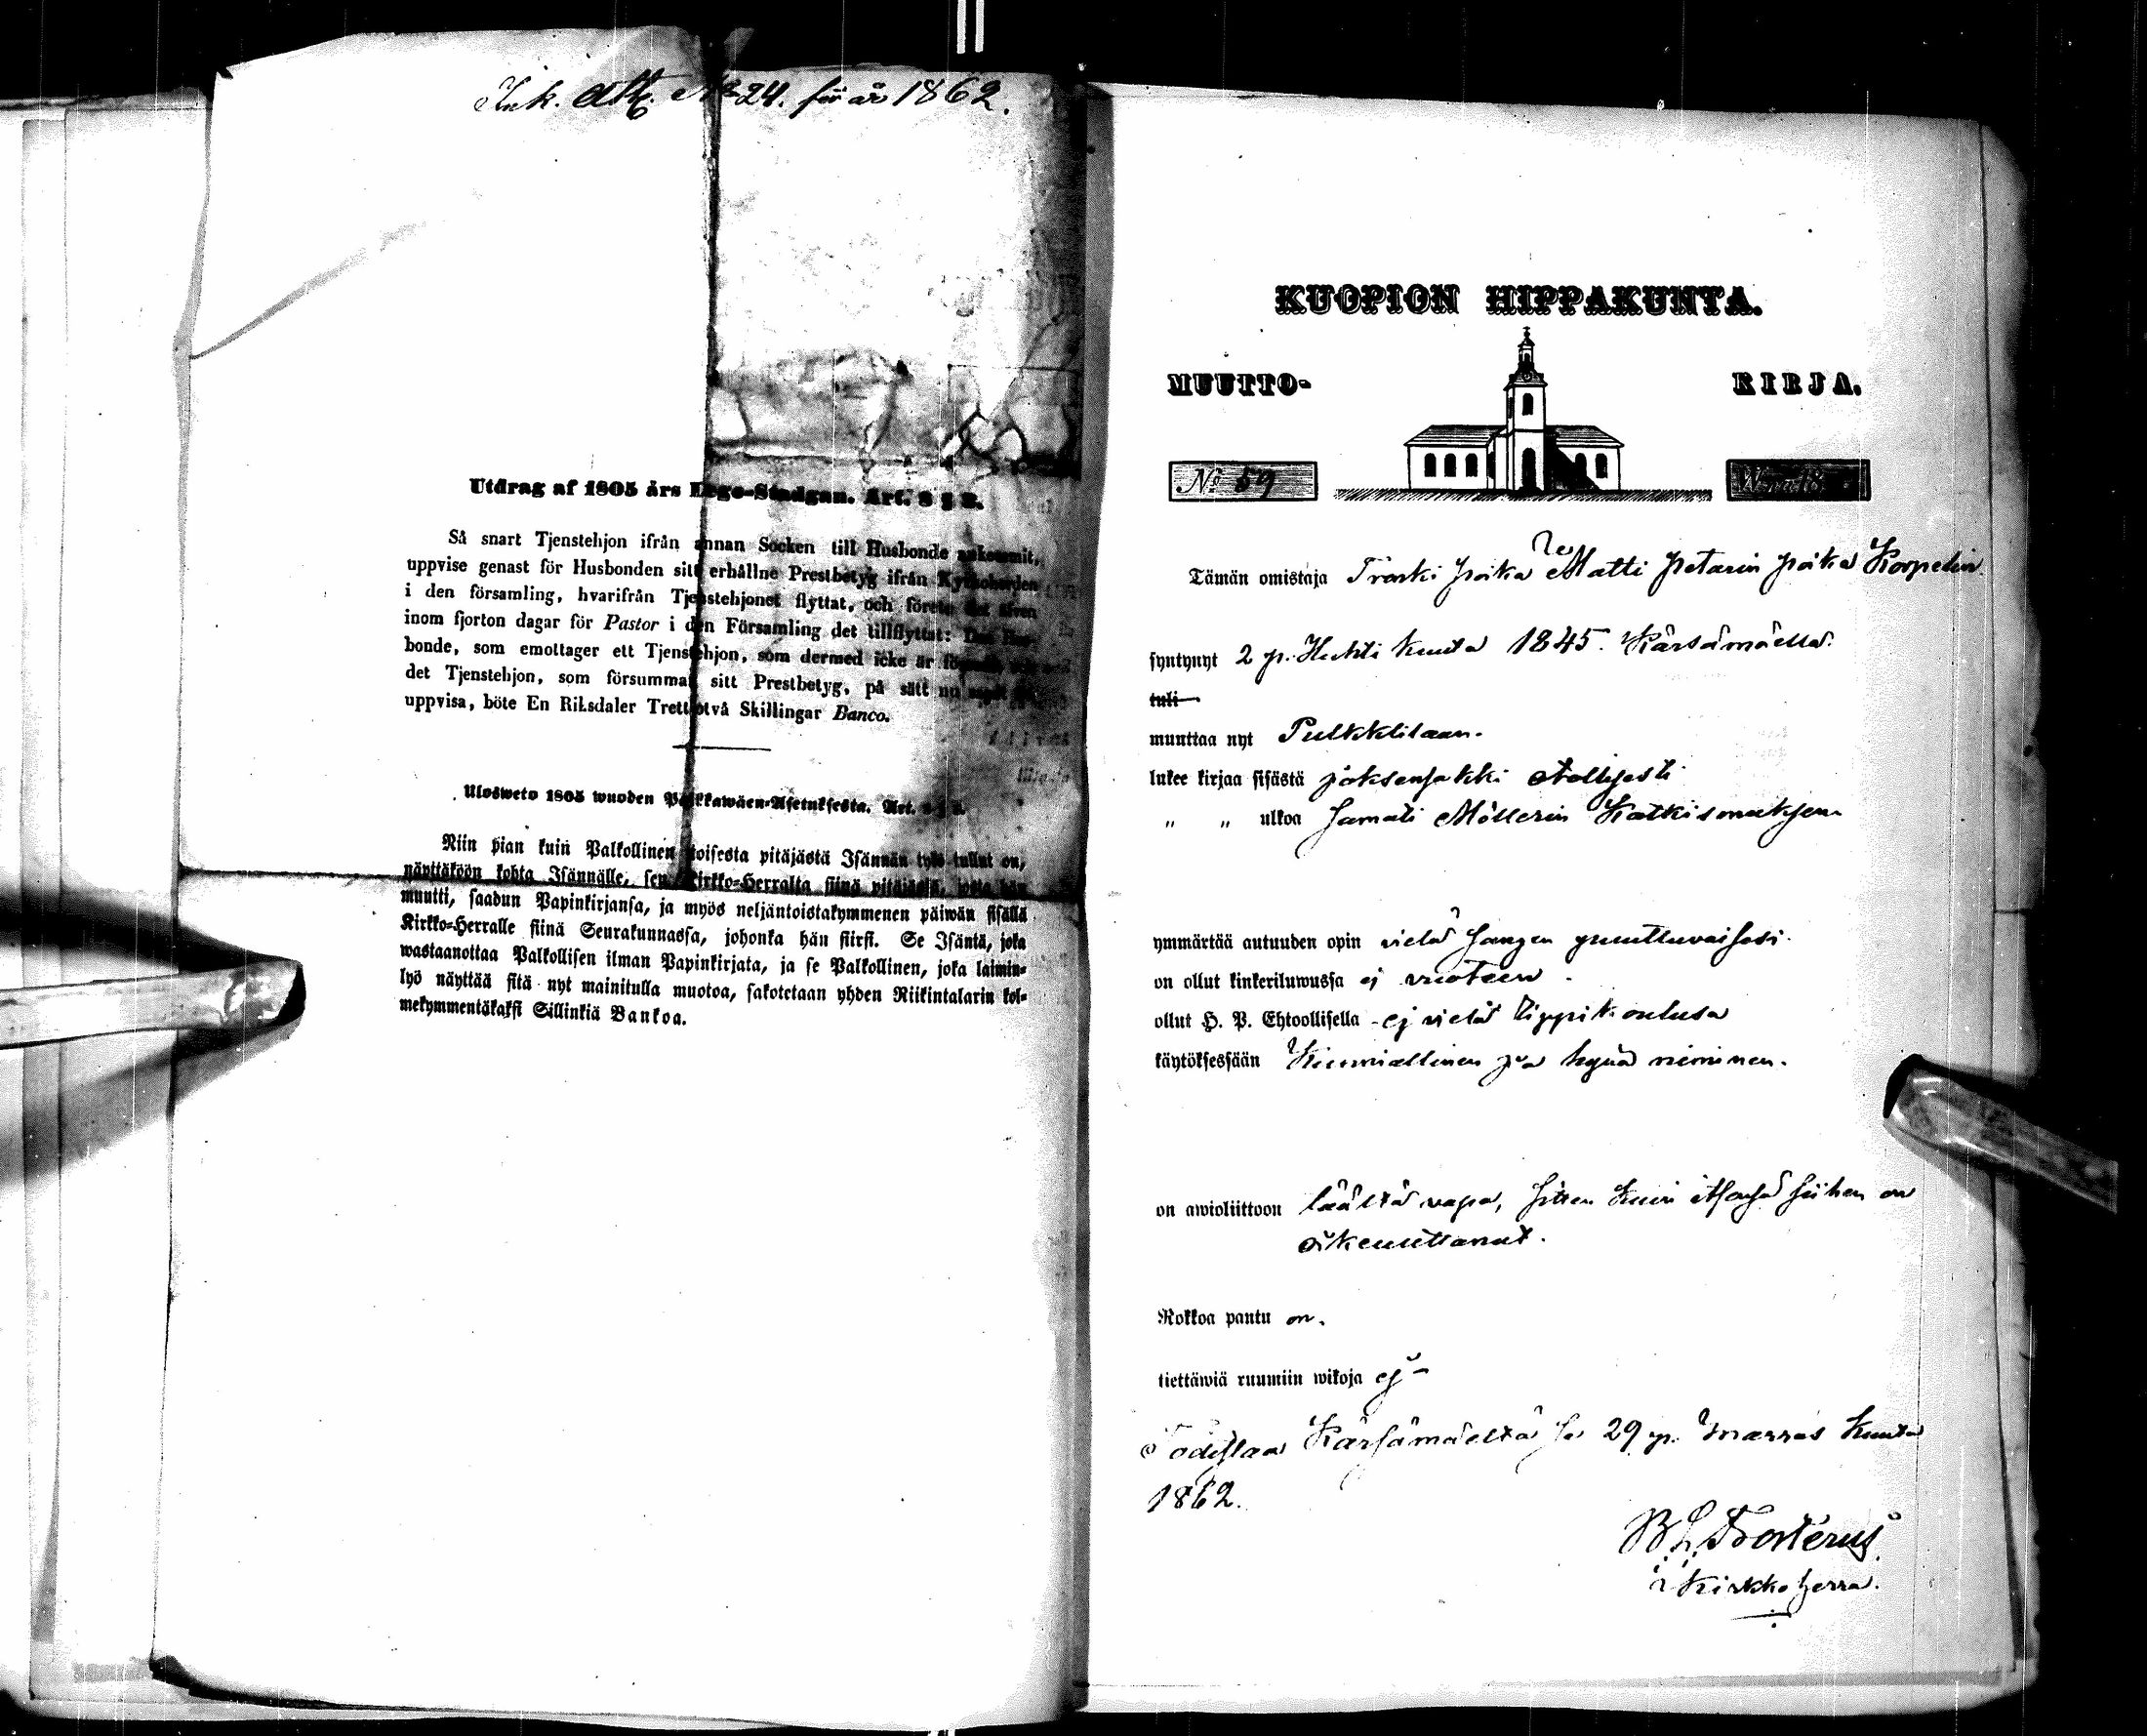 Ink. att. No 24. för år 1862.
Utdrag af 1805 års Lego-Stadgan. Art. 8 § 2.
Så snart Tjenstehjon ifrån annan Socken till Husbonde ankommit,
uppvise genast för Husbonden sitt erhållne Prestbetyg ifrån Kyrkoherden
i den församling, hvarifrån Tjenstehjonet flyttat, och förete det äfven
inom fjorton dagar för Pastor i den Församling det tillflyttat: Den Hus-
bonde, som emottager ett Tjenstehjon, som dermed icke är
det Tjenstehjon, som försummat sitt Prestbetyg, på sätt nu sagdt är
uppvisa, böte En Riksdaler Trettiotvå Skillingar Banco.
Ulosweto 1805 wuoden Palkkawäen-Asetuksesta. Art.
Niin pian kuin Palkollinen toisesta pitäjästä Isännän tykö tullut on,
näyttäköön kohta Isännälle, sen Kirkko-Herralta siinä pitäjässä, josta hän
muutti, saadun Papinkirjansa, ja myös neljäntoistakymmenen päiwän sisällä
Kirkko-Herralle siinä Seurakunnassa, johonka hän siirsi. Se Isäntä, joka
wastaanottaa Palkollisen ilman Papinkirjata, ja se Palkollinen, joka laimin-
lyö näyttää sitä nyt mainitulla muotoa, sakotetaan yhden Riikintalarin kol-
mekymmentäkaksi Sillinkiä Bankoa.
KUOPION HIPPAKUNTA.
MUUTTO- KIRJA.
No 59
Tämän omistaja poika Matti Petarin poika Korpelin
syntynyt 2 p. Huhti kuuta 1845. Kärsämäellä.
tuli
muuttaa nyt Pulkkilaan.
lukee kirjaa sisästä joksenkakki
" " ulkoa samati Möllerin Katkismuksen
ymmärtää autuuden opin vielä sangen puuttuvaisesi.
on ollut kinkeriluwussa ej vuoteen.
ollut H. P. Ehtoollisella ej vielä Rippikoulusa
käytöksessään Kunniallinen ja hyvä niminen.
on awioliittoon täältä vapa, siiten kuin siihen on
oikeuttanut.
Rokkoa pantu on.
tiettäwiä ruumiin wikoja ej
Todistaa Kärsämäeltä se 29 p. Marras kuuta
1862.
B. L. Frosterus
Kirkkoherra.